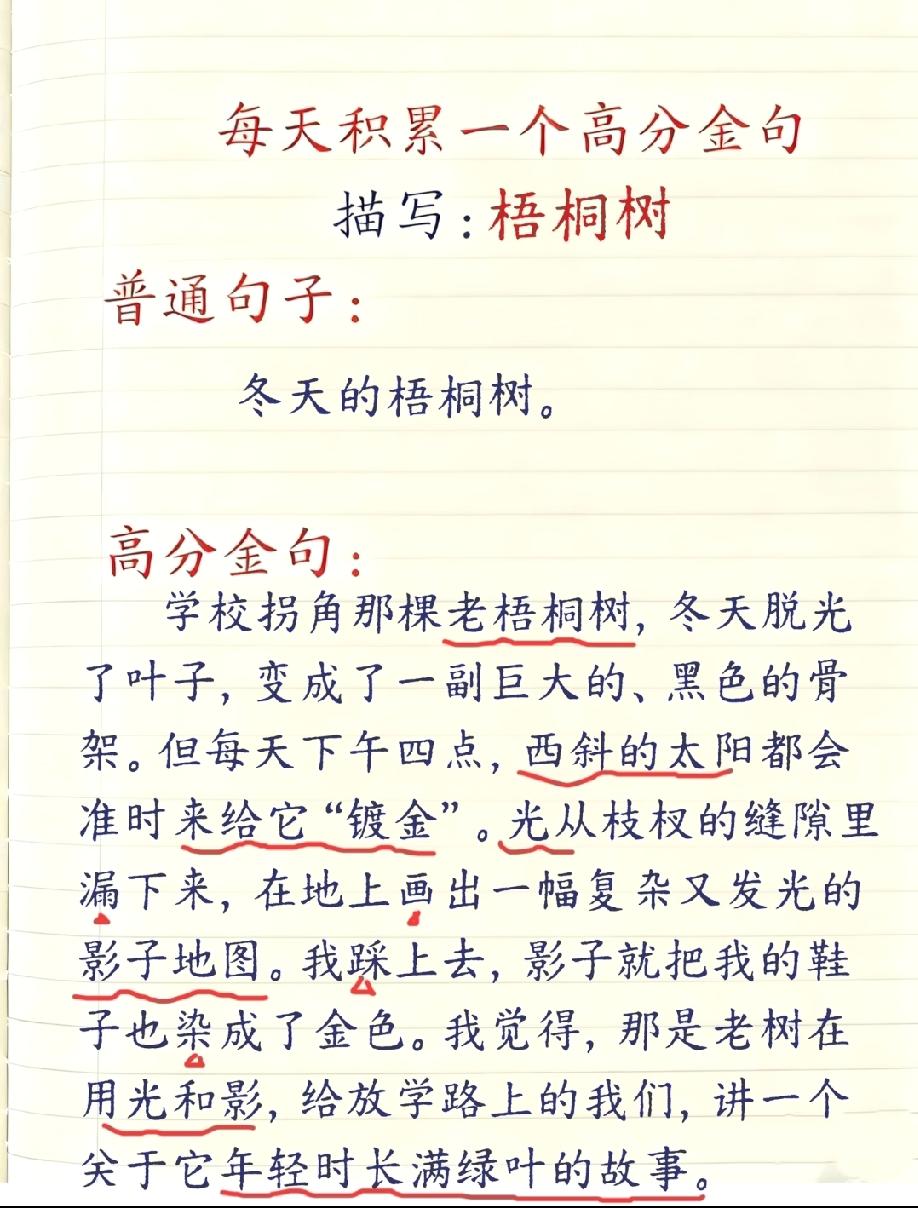 每天积累一个高分金句
描写:梧桐树
普通句子:
冬天的梧桐树。
高分金句:
学校拐角那棵老梧桐树,冬天脱光
了叶子,变成了一副巨大的、黑色的骨
架。但每天下午四点,西斜的太阳都会
准时来给它“镀金”。光从枝杈的缝隙里
漏下来,在地上画出一幅复杂又发光的
影子地图。我踩上去,影子就把我的鞋
子也染成了金色。我觉得,那是老树在
用光和影,给放学路上的我们,讲一个
关于它年轻时长满绿叶的故事。